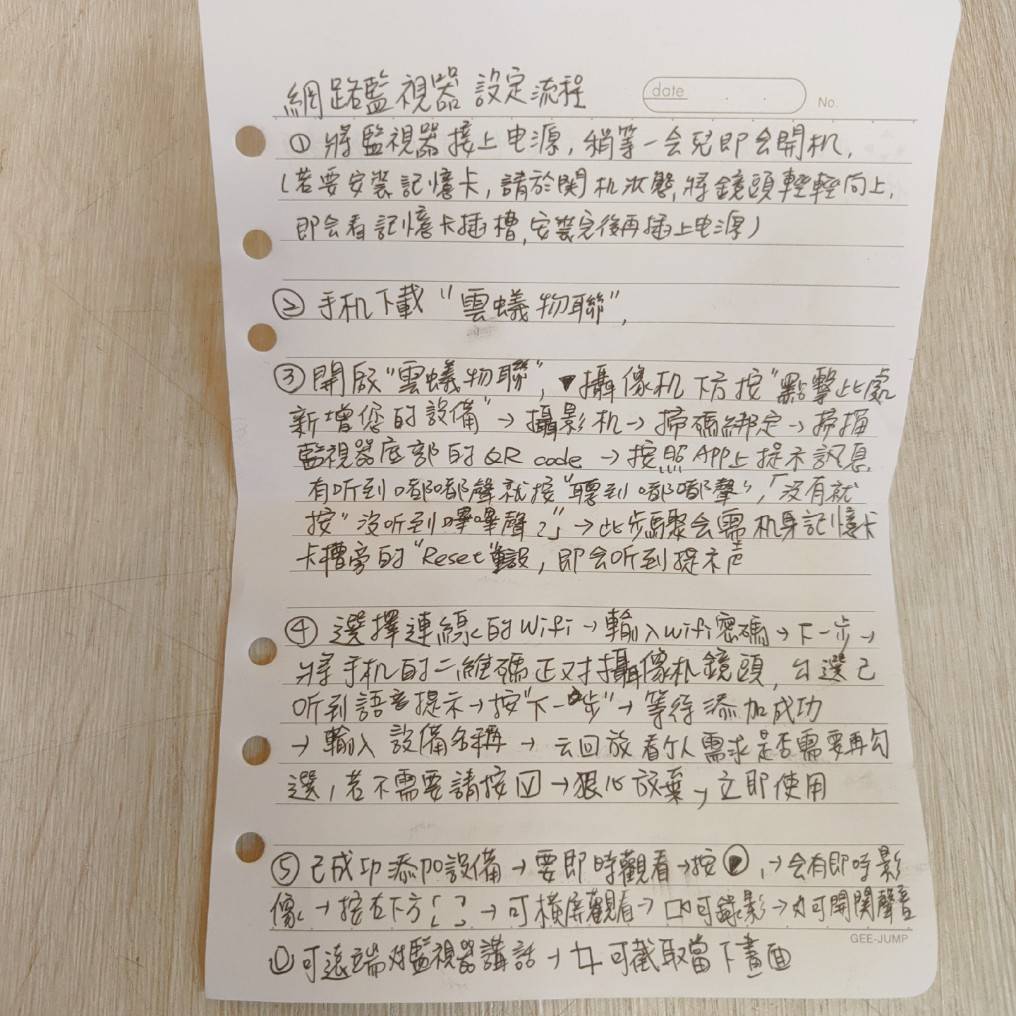 網路監視器 設定流程
date
No.
① 將監視器接上电源,稍等一会兒即会開机,
(若要安裝記憶卡,請於関机狀態,將鏡頭輕輕向上,
即会看記憶卡插槽,安裝完後再插上电源)
② 手机下載"雲蟻物聯",
③ 開啟"雲蟻物聯",攝像机下方按"點擊此處
新增您的設備"→攝影机→掃碼綁定→掃描
監視器底部的QR code →按照APP上提示訊息,
有听到嘟嘟聲就按"聽到嘟嘟聲",「沒有就
按"沒听到嗶嗶聲?」→此步驟会需机身記憶卡
卡槽旁的"Reset"重設,即会听到提示声
④ 選擇連線的Wifi→輸入wifi密碼→下一步→
將手机的二維碼正对攝像机鏡頭,勾選己
听到語音提示→按"下一步"→等待添加成功
→輸入 設備名稱 → 云回放看个人需求是否需要再勾
選,若不需要請按☑→狠心放棄→立即使用
⑤ 已成功添加設備→要即時觀看→按,→会有即時影
像→按右下方[ ]→可橫屏觀看→可錄影→可開関聲音
可遠端对監視器講話→可截取當下畫面
GEE-JUMP